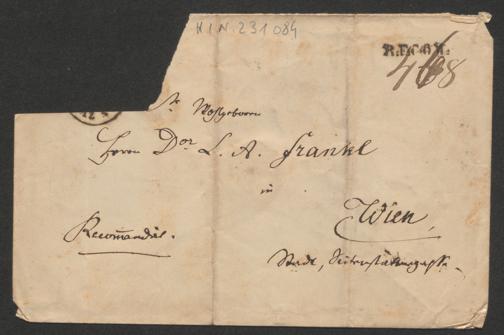 H.I.N. 231084
RECOM.
468
Sr Wohlgeboren
Herrn Dor L. A. Frankl
in
Wien,
Recommandirt.
Stadt, Seitenstettengasse